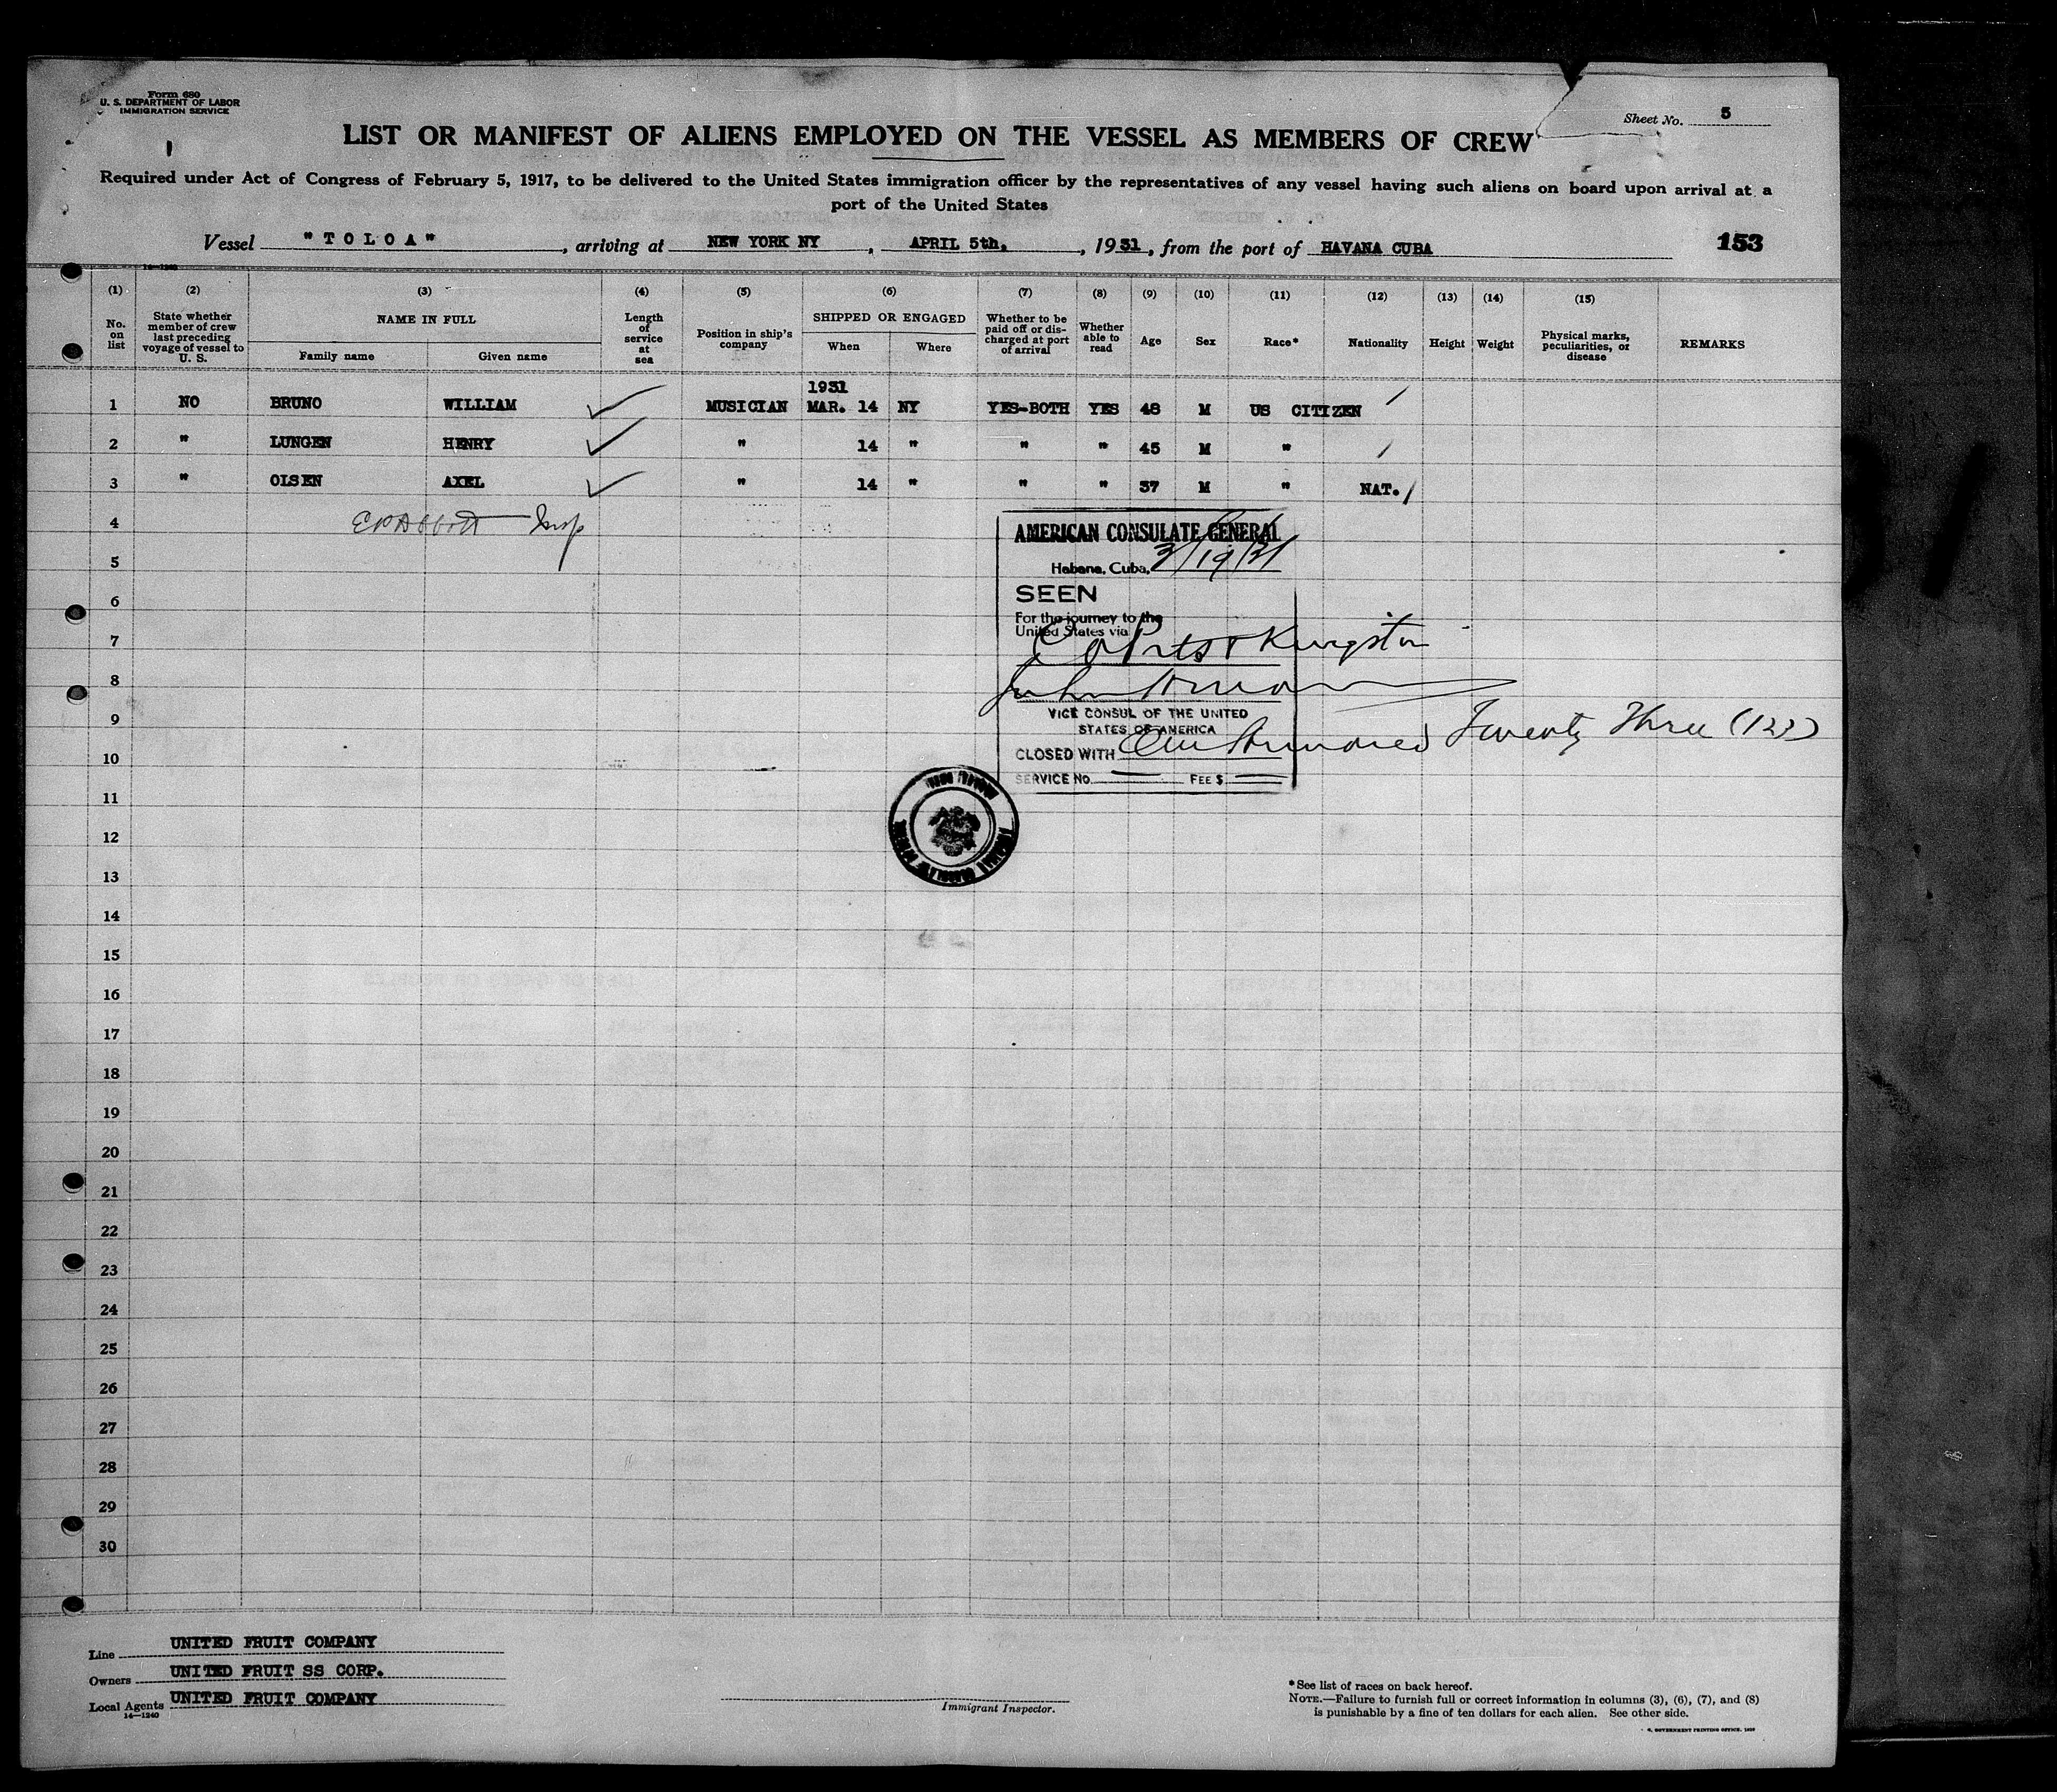 Form 680
U. S. DEPARTMENT OF LABOR
IMMIGRATION SERVICE
Sheet No. 5
LIST OR MANIFEST OF ALIENS EMPLOYED ON THE VESSEL AS MEMBERS OF CREW
Required under Act of Congress of February 5, 1917, to be delivered to the United States immigration officer by the representatives of any vessel having such aliens on board upon arrival at a
port of the United States
Vessel "TOLOA", arriving at NEW YORK NY, APRIL 5th., 1931, from the port of HAVANA CUBA
153
14—1240
(1) (2) (3) (4) (5) (6) (7) (8) (9) (10) (11) (12) (13) (14) (15)
No. on list
State whether member of crew last preceding voyage of vessel to U. S.
NAME IN FULL
Family name Given name
Length of service at sea
Position in ship's company
SHIPPED OR ENGAGED
When Where
Whether to be paid off or discharged at port of arrival
Whether able to read
Age Sex Race* Nationality Height Weight
Physical marks, peculiarities, or disease
REMARKS
1931
1 NO BRUNO WILLIAM MUSICIAN MAR. 14 NY YES-BOTH YES 48 M US CITIZEN
2 " LUNGEN HENRY " 14 " " " 45 M "
3 " OLSEN AXEL " 14 " " " 37 M " NAT.
4 Insp
5
6
7
8
9
10
11
12
13
14
15
16
17
18
19
20
21
22
23
24
25
26
27
28
29
30
AMERICAN CONSULATE GENERAL
Habana, Cuba, 3/19/31
SEEN
For the journey to the
United States via
Ports & Kingston
John
VICE CONSUL OF THE UNITED
STATES OF AMERICA
CLOSED WITH One Hundred Twenty Three (123)
SERVICE No. FEE $
Line UNITED FRUIT COMPANY
Owners UNITED FRUIT SS CORP.
Local Agents UNITED FRUIT COMPANY
14—1240
Immigrant Inspector.
*See list of races on back hereof.
NOTE.—Failure to furnish full or correct information in columns (3), (6), (7), and (8)
is punishable by a fine of ten dollars for each alien. See other side.
GOVERNMENT PRINTING OFFICE